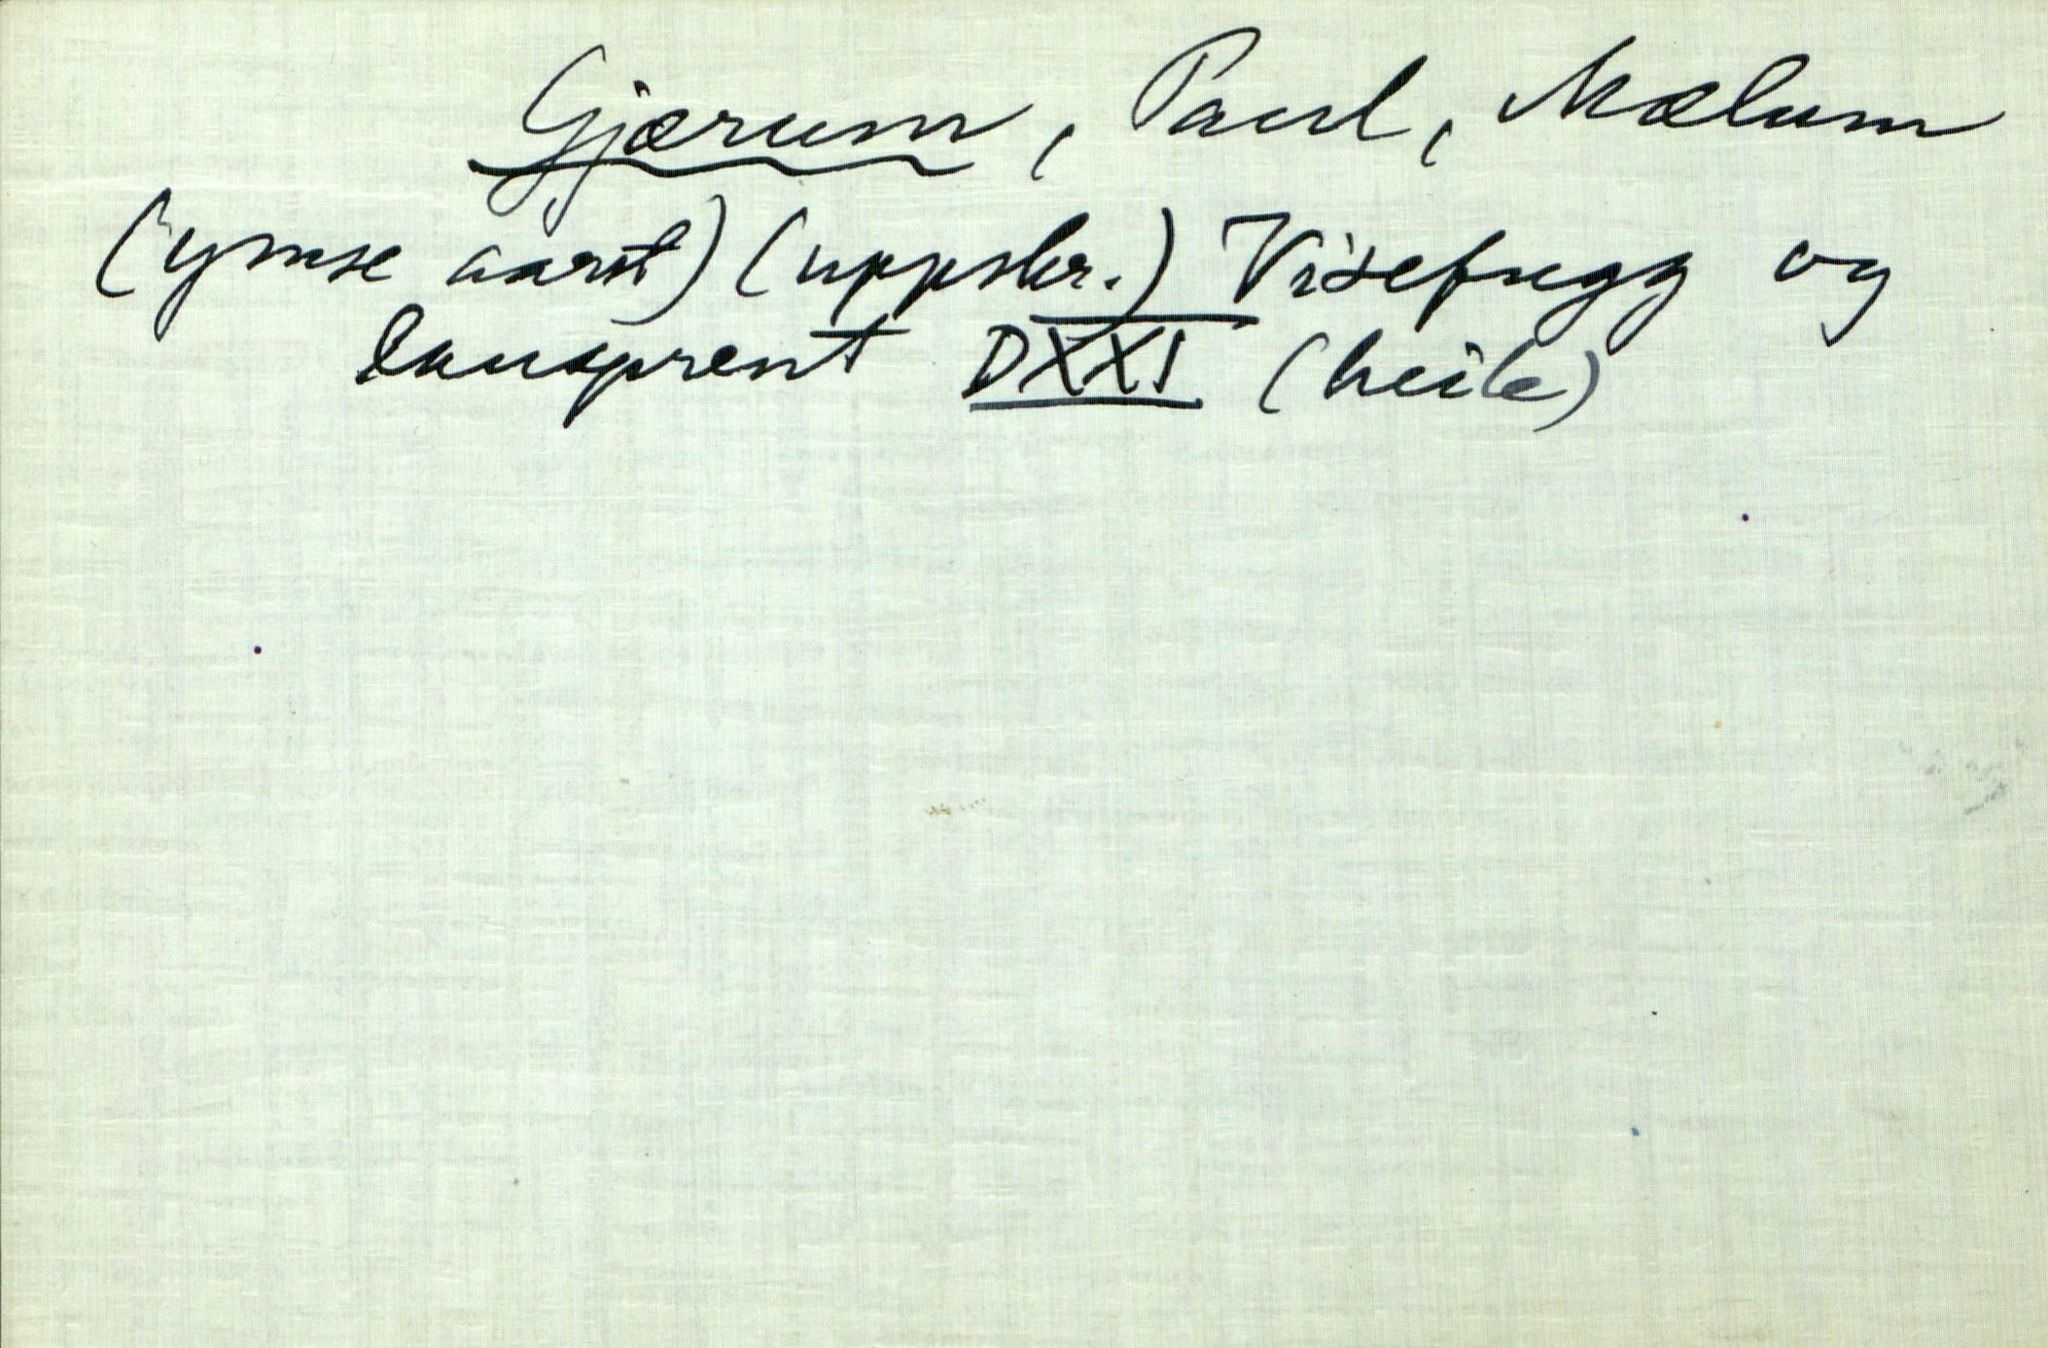 Gjærum, Paul, Mælum
(ymse aarst) (uppskr.) Visefugg og
lausprent DXXI (heile)